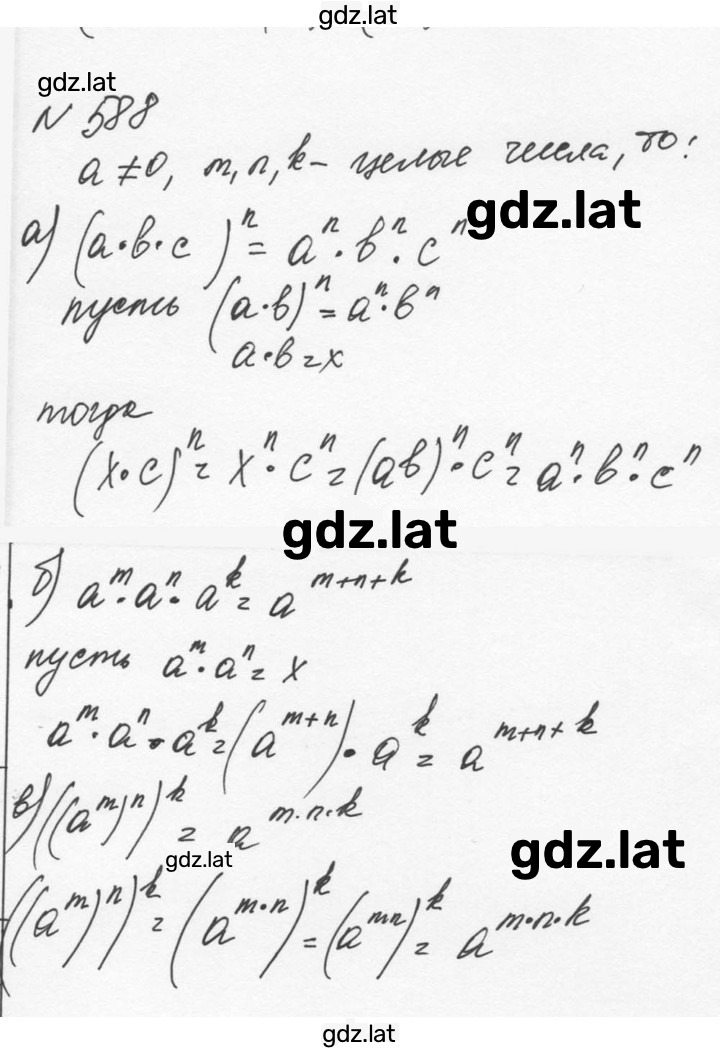 gdz.lat
gdz.lat
N 588
a ≠ 0, m, n, k – целые числа, то:
gdz.lat
а) (a·b·c)ⁿ = aⁿ · bⁿ · cⁿ
пусть (a·b)ⁿ = aⁿ · bⁿ
a·b = x
тогда
(x·c)ⁿ = xⁿ · cⁿ = (ab)ⁿ · cⁿ = aⁿ · bⁿ · cⁿ
gdz.lat
б) aᵐ · aⁿ · aᵏ = a^(m+n+k)
пусть aᵐ · aⁿ = x
aᵐ · aⁿ · aᵏ = (a^(m+n)) · aᵏ = a^(m+n+k)
в) ((aᵐ)ⁿ)ᵏ = a^(m·n·k)
gdz.lat
gdz.lat
((aᵐ)ⁿ)ᵏ = (a^(m·n))ᵏ = (a^(mn))ᵏ = a^(m·n·k)
gdz.lat